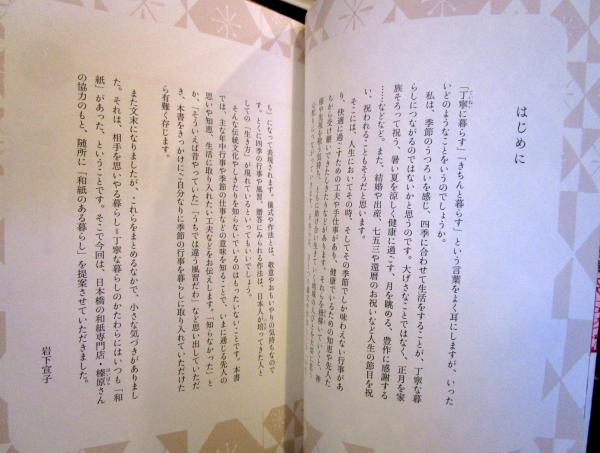 はじめに
「丁寧に暮らす」「きちんと暮らす」という言葉をよく耳にしますが、いった
いどのようなことをいうのでしょうか。
私は、季節のうつろいを感じ、四季に合わせて生活をすることが、丁寧な暮
らしにつながるのではないかと思うのです。大げさなことではなく、正月を家
族そろって祝う、暑い夏を涼しく健康に過ごす、月を眺める、豊作に感謝する
……などなど。また、結婚や出産、七五三や還暦のお祝いなど人生の節目を祝
い、祝われることもそうだと思います。
そこには、人生においてその時、そしてその季節でしか味わえない行事があ
り、快適に過ごすための工夫や手仕事があり、健康でいるための知恵や先人た
ちから受け継いできたしきたりなどがあります。それらを
も」になって表現されます。儀式や作法とは、敬意やおもいやりの気持ちなので
す。とくに四季の行事や風習、贈答にみられる作法は、日本人が培ってきた人と
しての「生き方」が現れているといってもいいでしょう。
そんな伝統文化やしきたりを知らないでいるのはもったいないことです。本書
では、主な年中行事や季節の仕事などの意味を知ることで、いまに通じる先人の
思いや知恵、生活に取り入れたい工夫などをお伝えします。「知らなかった」と
か、「そういえば昔やっていた」「うちでは違う風習だわ」など思い出していただ
き、本書をきっかけにご自分なりに季節の行事を暮らしに取り入れていただけた
ら有難く存じます。
また文末になりましたが、これらをまとめるなかで、小さな気づきがありまし
た。それは、相手を思いやる暮らし＝丁寧な暮らしのかたわらにはいつも「和
紙」があった、ということです。そこで今回は、日本橋の和紙専門店・榛原さん
の協力のもと、随所に「和紙のある暮らし」を提案させていただきました。
岩下宣子